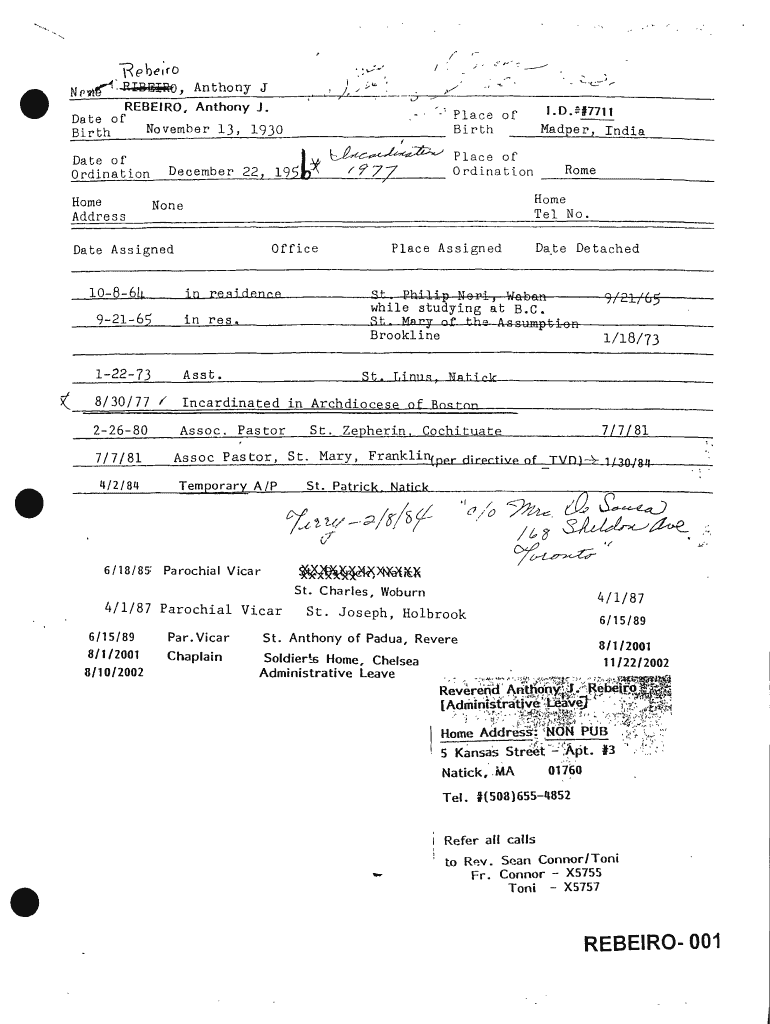 Rebeiro
Name RIBEIRO, Anthony J
REBEIRO, Anthony J.
Date of Birth November 13, 1930 Place of Birth Madper, India I.D.##7711
Date of Ordination December 22, 1956 * Incardination 1977 Place of Ordination Rome
Home Address None Home Tel No.
Date Assigned Office Place Assigned Date Detached
10-8-64 in residence St. Philip Neri, Waban 9/21/65
while studying at B.C.
9-21-65 in res. St. Mary of the Assumption
Brookline 1/18/73
1-22-73 Asst. St. Linus, Natick
8/30/77 Incardinated in Archdiocese of Boston
2-26-80 Assoc. Pastor St. Zepherin, Cochituate 7/7/81
7/7/81 Assoc Pastor, St. Mary, Franklin (per directive of TVD) → 1/30/84
4/2/84 Temporary A/P St. Patrick, Natick
Terry-2/8/84 "c/o Mrs. De Sousa
168 Sheldon Ave.
Toronto"
6/18/85 Parochial Vicar
St. Charles, Woburn 4/1/87
4/1/87 Parochial Vicar St. Joseph, Holbrook 6/15/89
6/15/89 Par.Vicar St. Anthony of Padua, Revere 8/1/2001
8/1/2001 Chaplain Soldier's Home, Chelsea 11/22/2002
8/10/2002 Administrative Leave
Reverend Anthony J. Rebeiro
[Administrative Leave]
Home Address: NON PUB
5 Kansas Street - Apt. #3
Natick, MA 01760
Tel. #(508)655-4852
Refer all calls
to Rev. Sean Connor/Toni
Fr. Connor - X5755
Toni - X5757
REBEIRO- 001